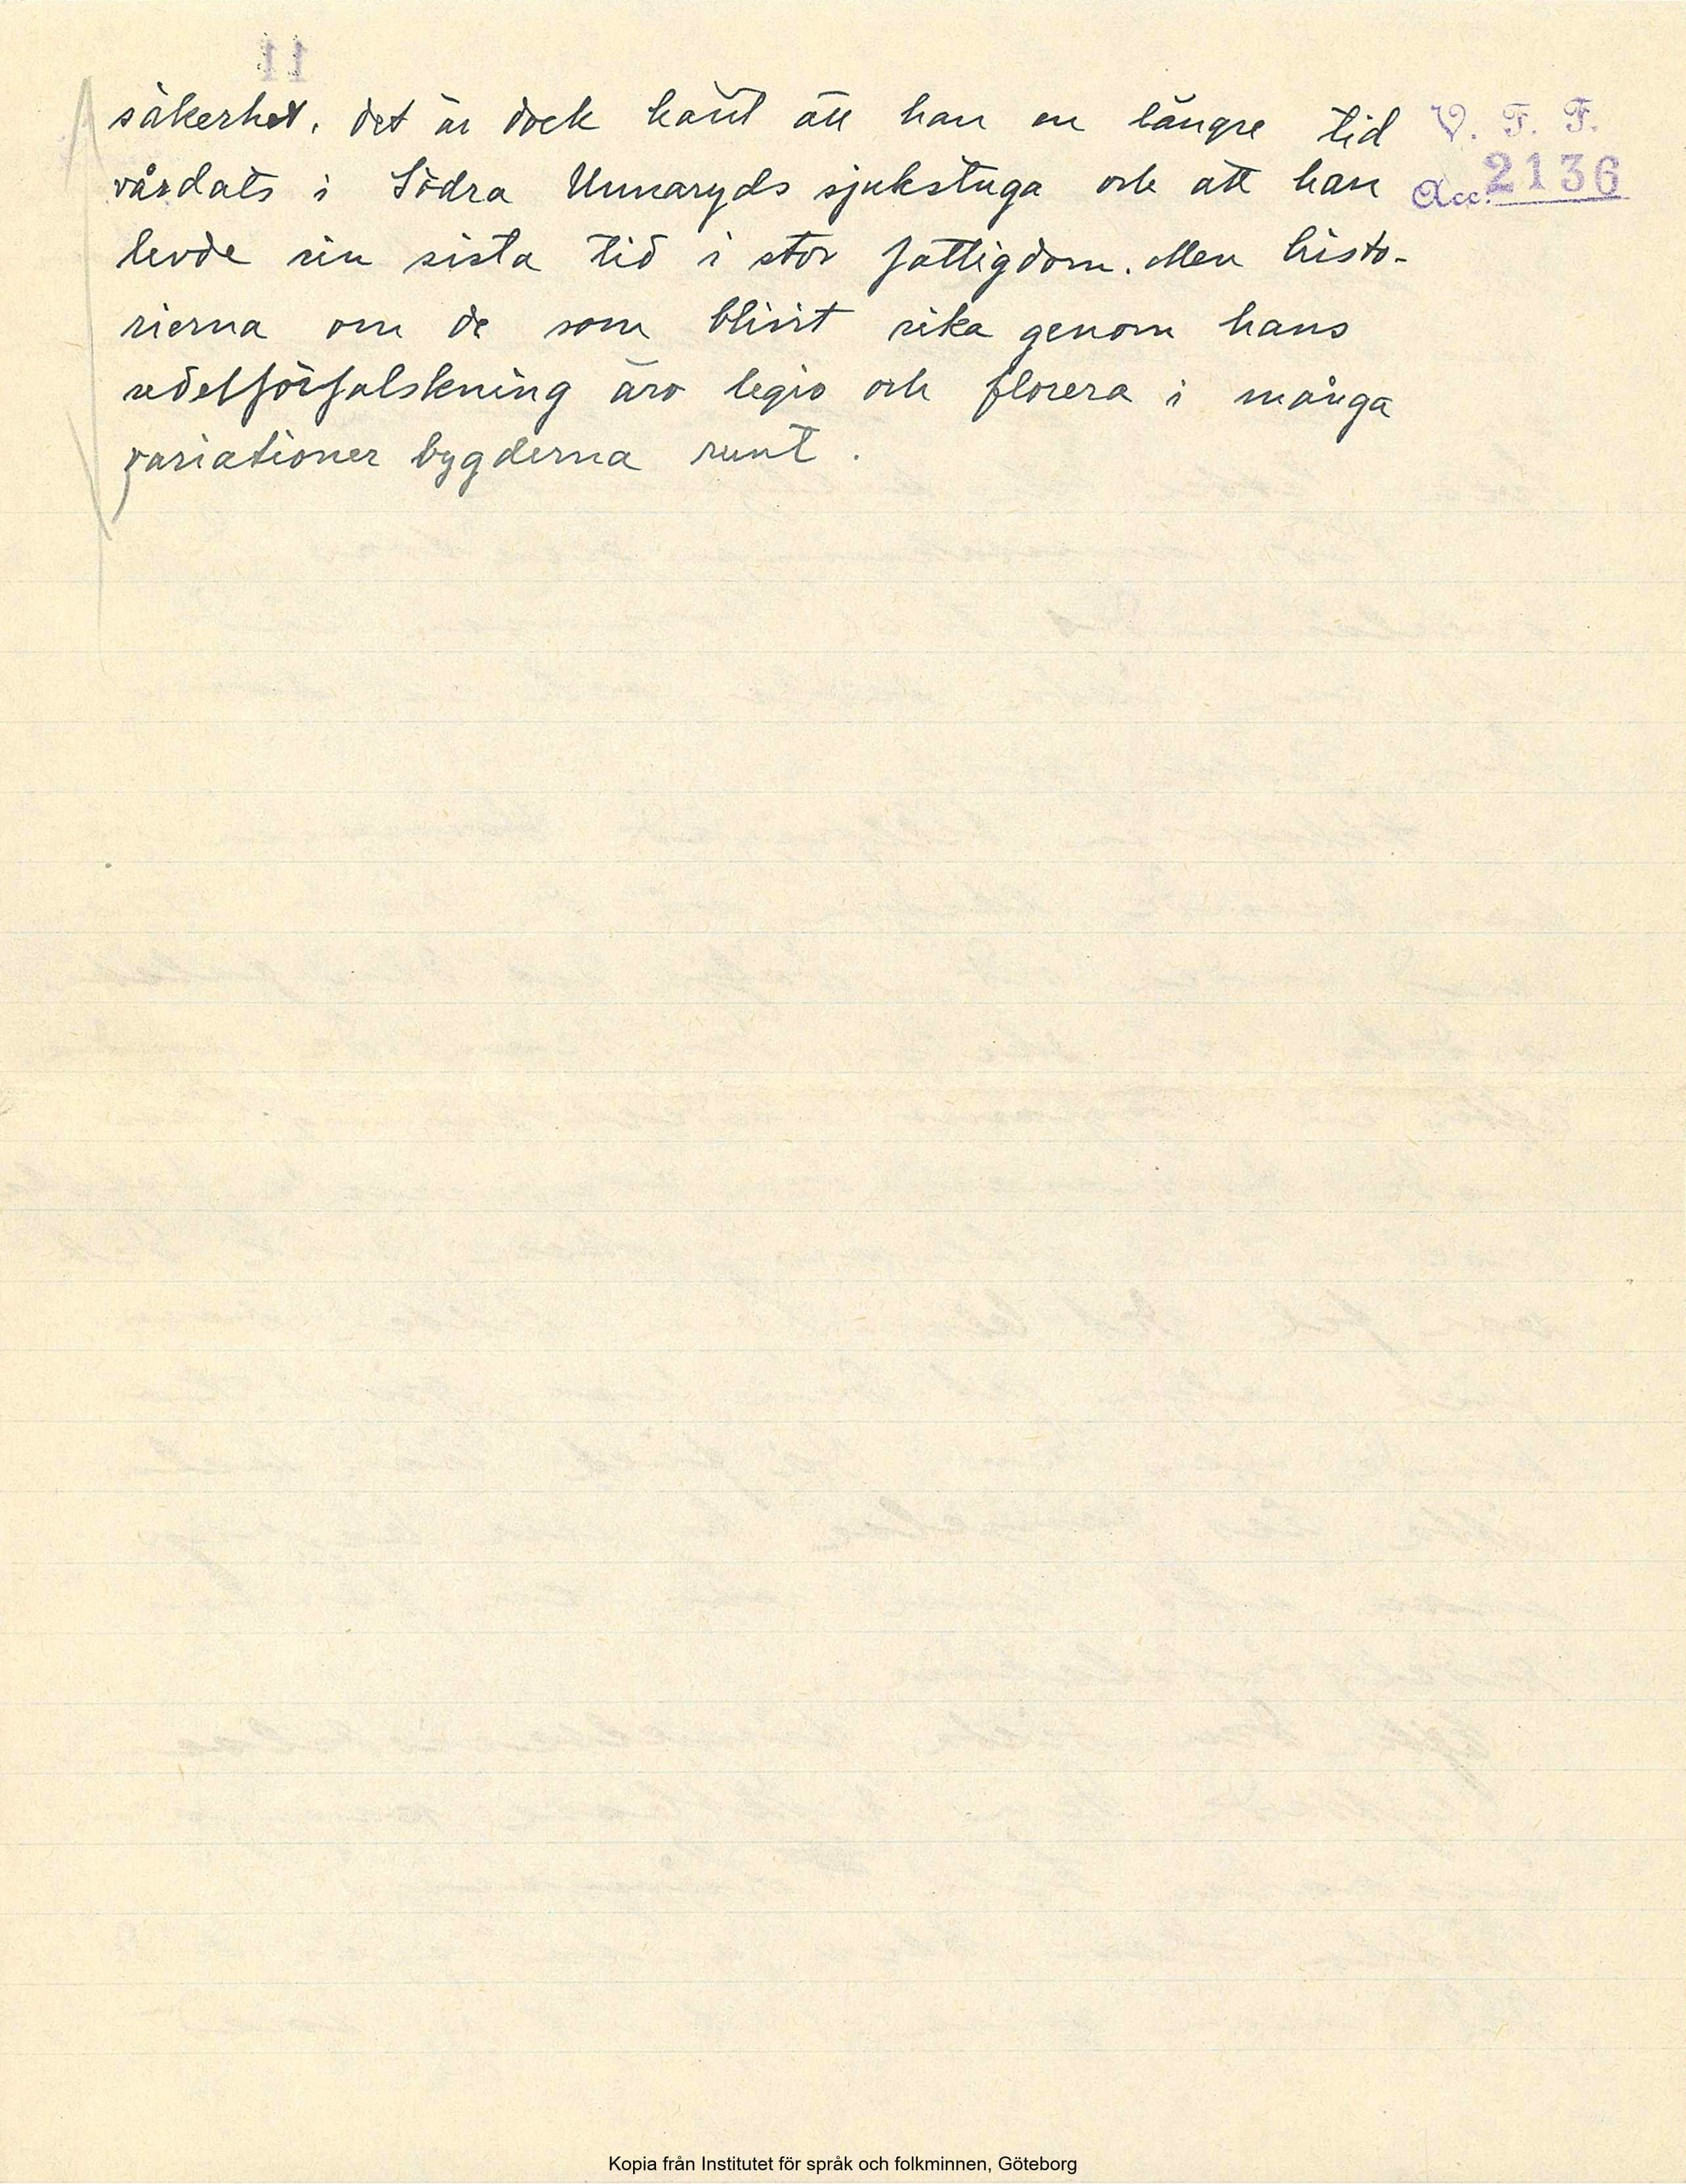 11
säkerhet, det är dock känt att han en längre tid
V. F. F.
vårdats i Södra Unnaryds sjukstuga och att han
Acc. 2136
levde sin sista tid i stor fattigdom. Men histo-
rierna om de som blivit rika genom hans
sedelförfalskning äro legio och florera i många
variationer bygderna runt.
Kopia från Institutet för språk och folkminnen, Göteborg